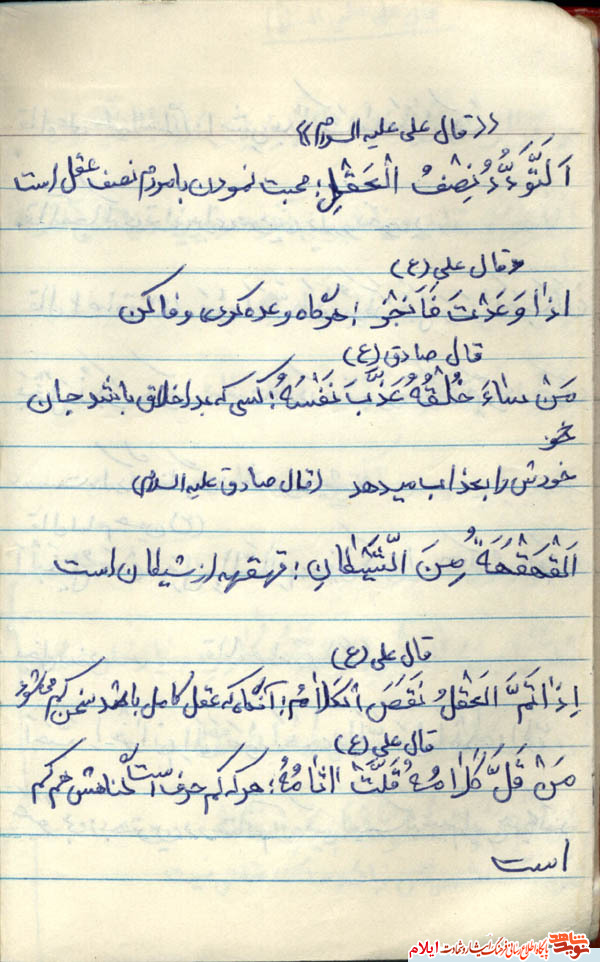 «قال علی علیه السلام»
اَلتَّوَدُّدُ نِصْفُ الْعَقْلِ؛ محبت نمودن با مردم نصف عقل است
«قال علی (ع)
اذٰا وَعَدْتَ فَاَنْجِزْ؛ هرگاه وعده کردی وفا کن
قال صادق (ع)
مَنْ سٰاءَ خُلْقُهُ عَذَّبَ نَفْسَهُ؛ کسی که بد اخلاق باشد جان
خو
خودش را بعذاب میدهد (قال صادق علیه السلام)
اَلْقَهْقَهَةُ مِنَ الشَّیْطٰانِ؛ قهقهه از شیطان است
قال علی (ع)
اِذٰا تَمَّ الْعَقْلُ نَقَصَ الْکَلٰامُ؛ آنگاه که عقل کامل باشد سخن کم میشود
قال علی (ع)
مَنْ قَلَّ کَلٰامُهُ قَلَّتْ اٰثٰامُهُ؛ هر که کم حرف است گناهش هم کم
است
نوید شاهد پایگاه اطلاع رسانی فرهنگ ایثار و شهادت ایلام